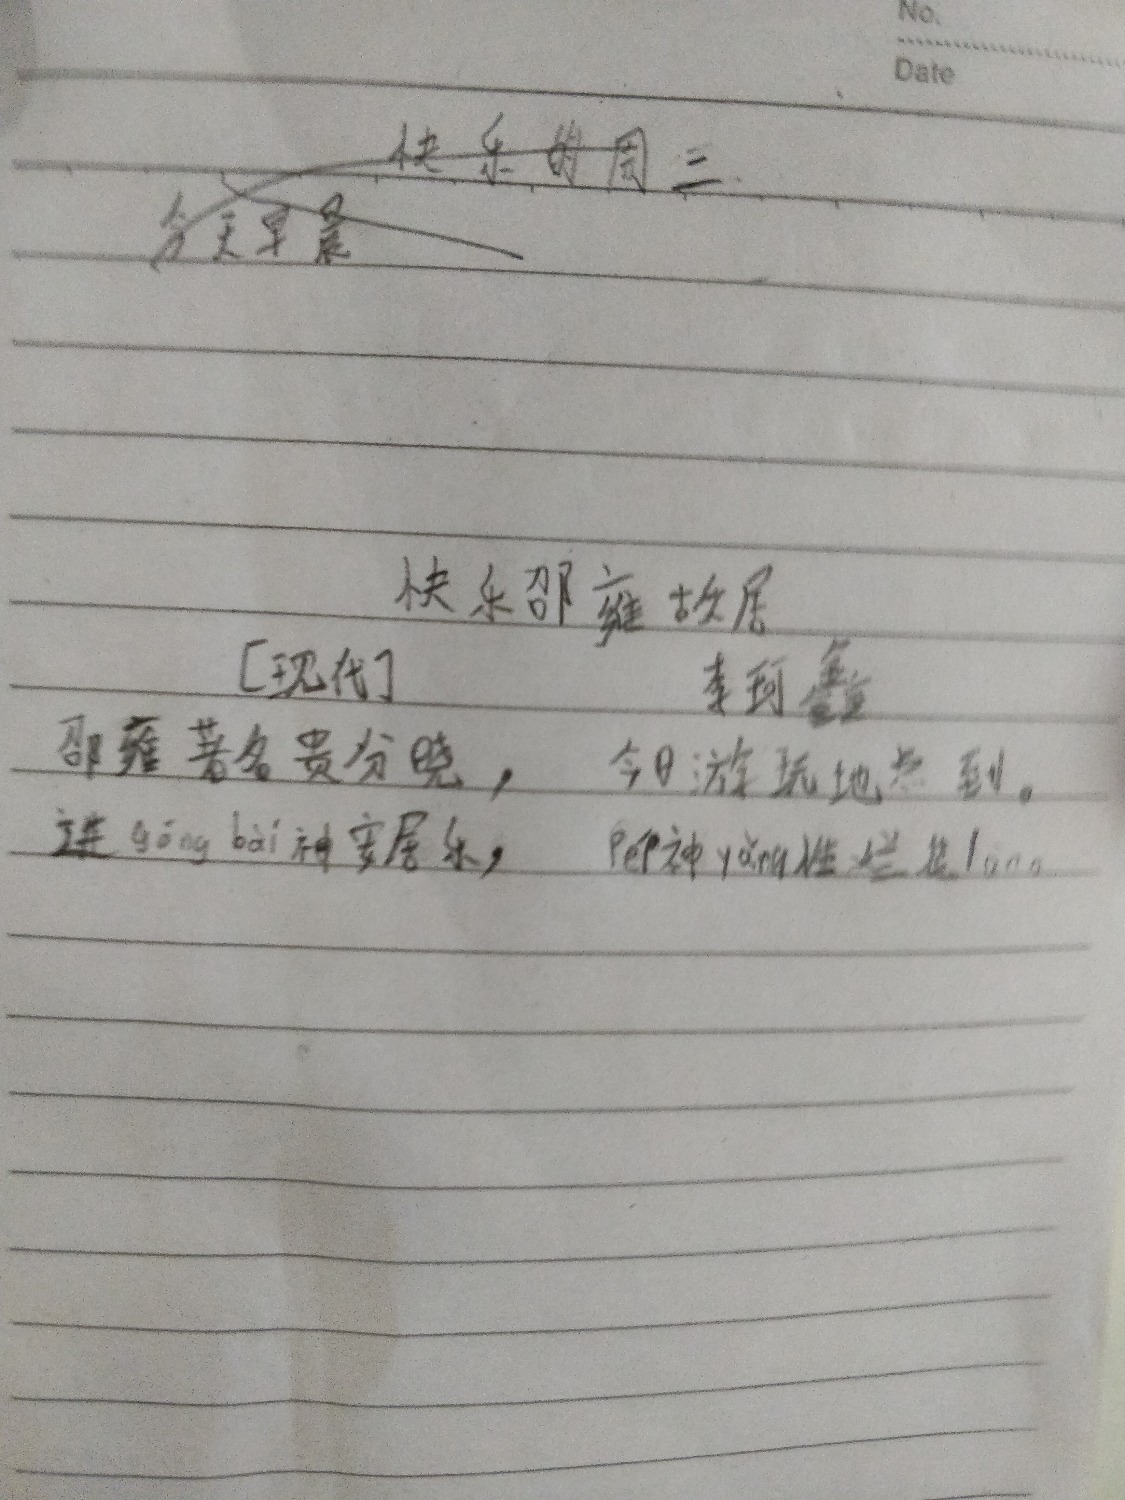 No.
Date
快乐的周三.
今天早晨
快乐邵雍故居
[现代] 李珂鑫
邵雍著名贵分晓, 今日游玩地点到。
进 gōng bài 神安居乐, 神 yǎng 性